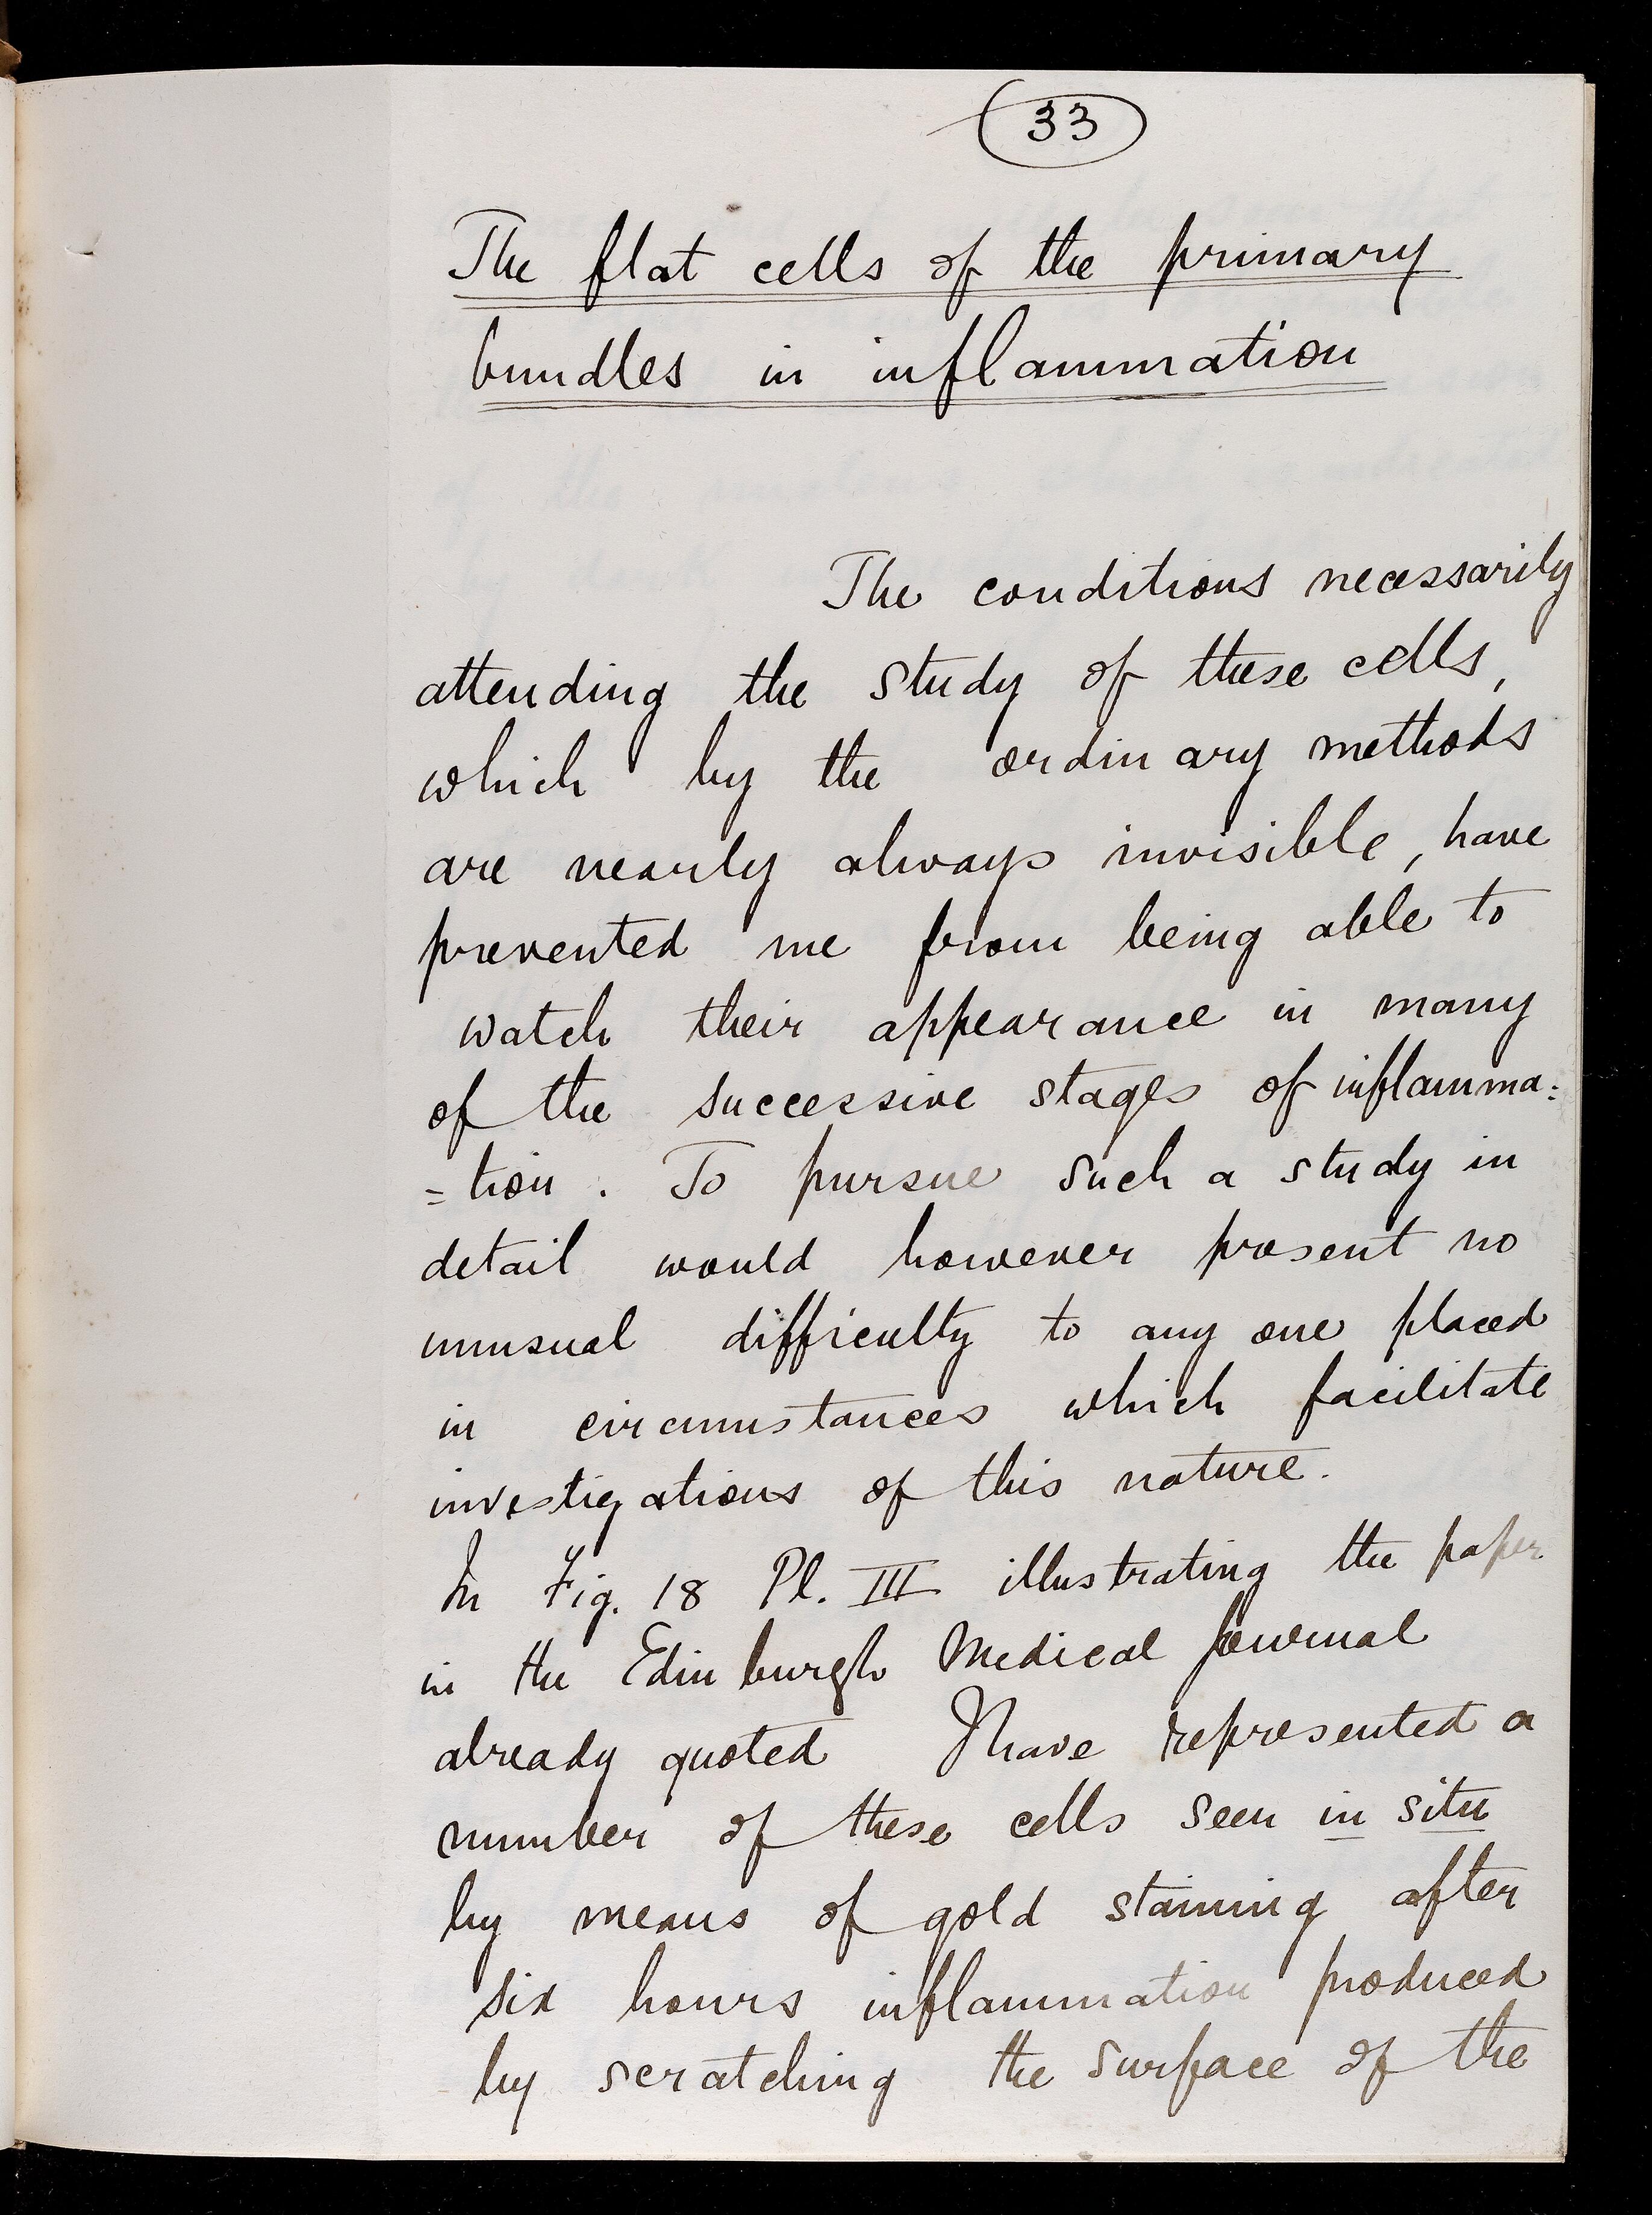 33
The flat cells of the primary
bundles in inflammation
The conditions necessarily
attending the study of these cells,
which by the ordinary methods
are nearly always invisible, have
prevented me from being able to
watch their appearance in many
of the successive stages of inflamma:
=tion. To pursue such a study in
detail would however present no
unusual difficulty to any one placed
in circumstances which facilitate
investigations of this nature.
In Fig. 18 Pl. III illustrating the paper
in the Edinburgh Medical Journal
already quoted I have represented a
number of these cells seen in situ
by means of gold staining after
six hours inflammation produced
by scratching the surface of the